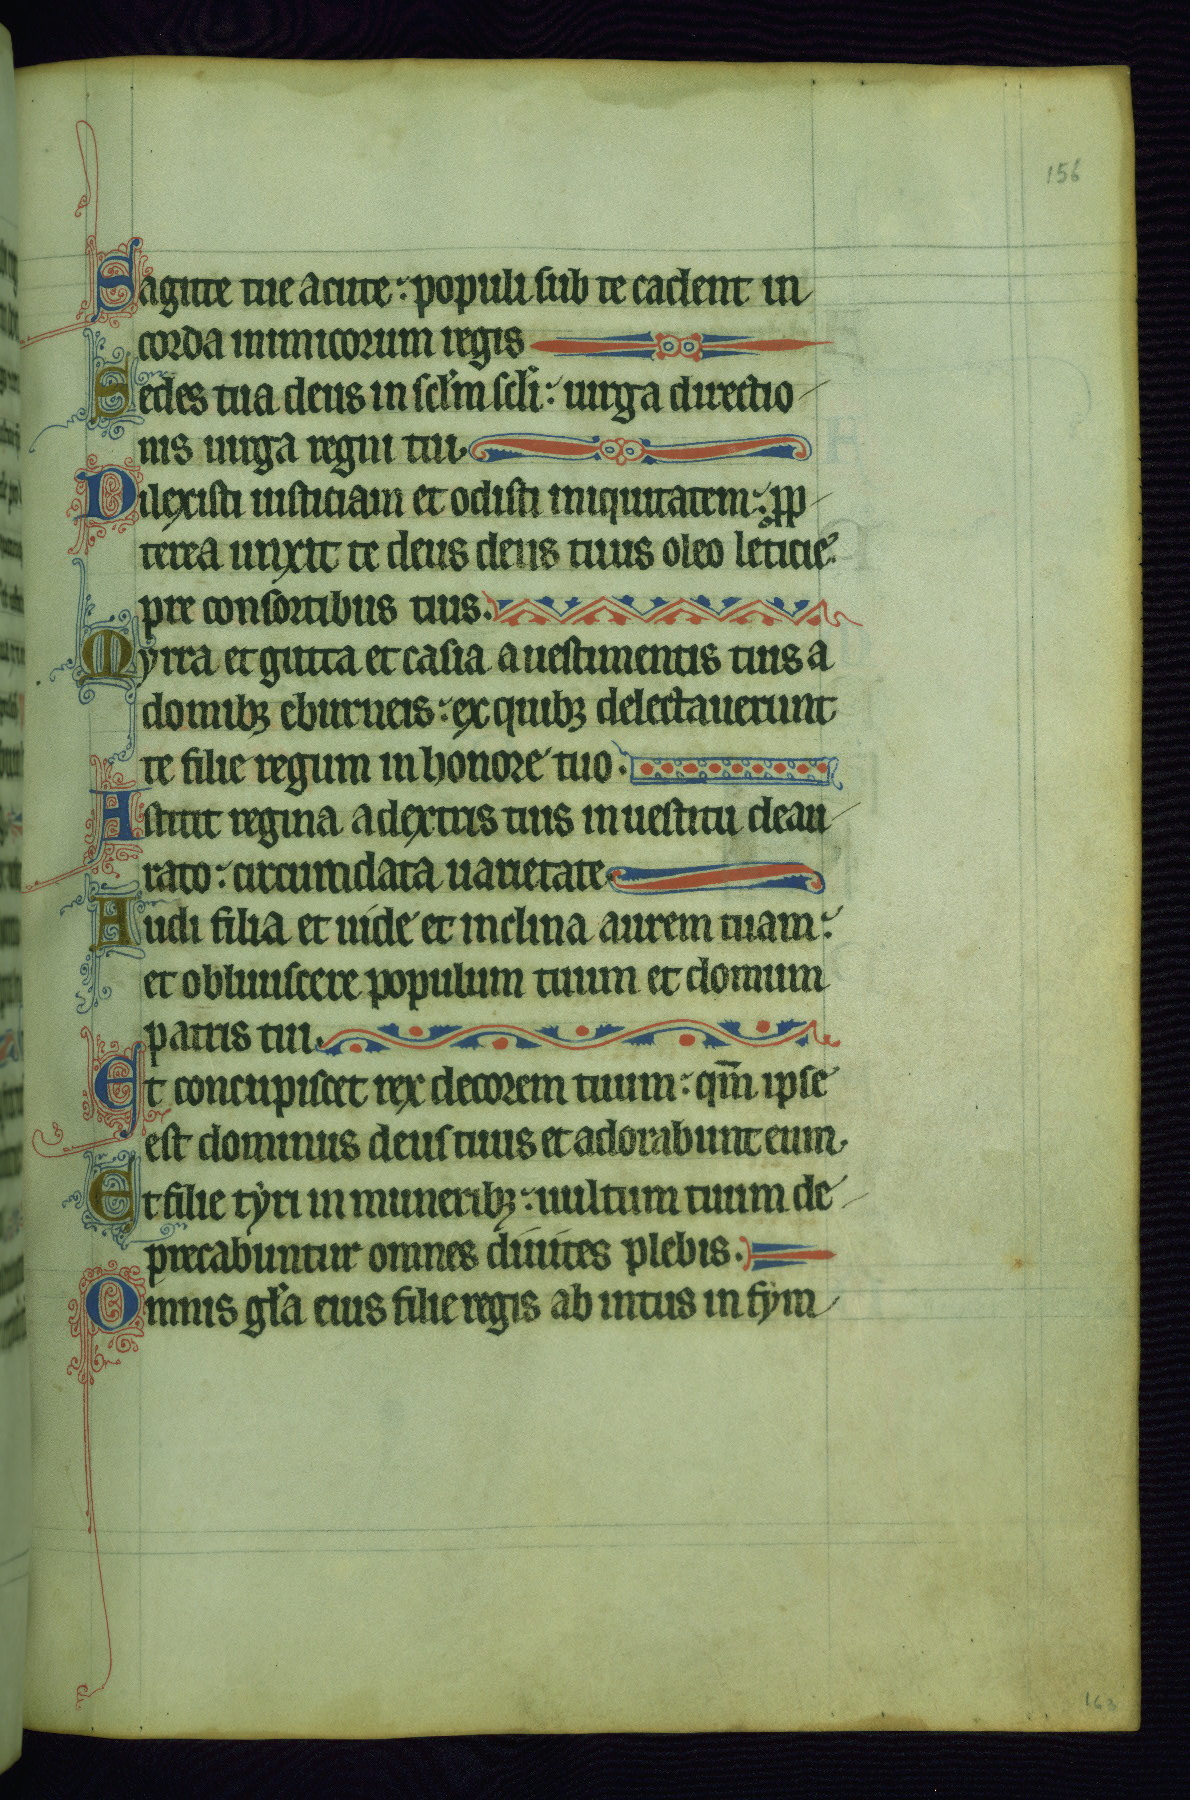 156
Sagitte tue acute: populi sub te cadent in
corda inimicorum regis
Sedes tua deus in sclm scli: uirga directio
nis uirga regni tui.
Dilexisti iusticiam et odisti iniquitatem: pp
terea unxit te deus deus tuus oleo leticie
pre consortibus tuis.
Myrra et gutta et casia a uestimentis tuis a
domibꝫ eburneis: ex quibꝫ delectauerunt
te filie regum in honore tuo.
Astitit regina a dextris tuis in uestitu deau
rato: circumdata uarietate.
Audi filia et uide et inclina aurem tuam:
et obliuiscere populum tuum et domum
patris tui.
Et concupiscet rex decorem tuum: qm̄ ipse
est dominus deus tuus et adorabunt eum.
Et filie tyri in muneribꝫ: uultum tuum de
precabuntur omnes diuites plebis.
Omnis gla eius filie regis ab intus in fym
163